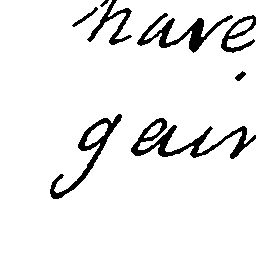 have
gain